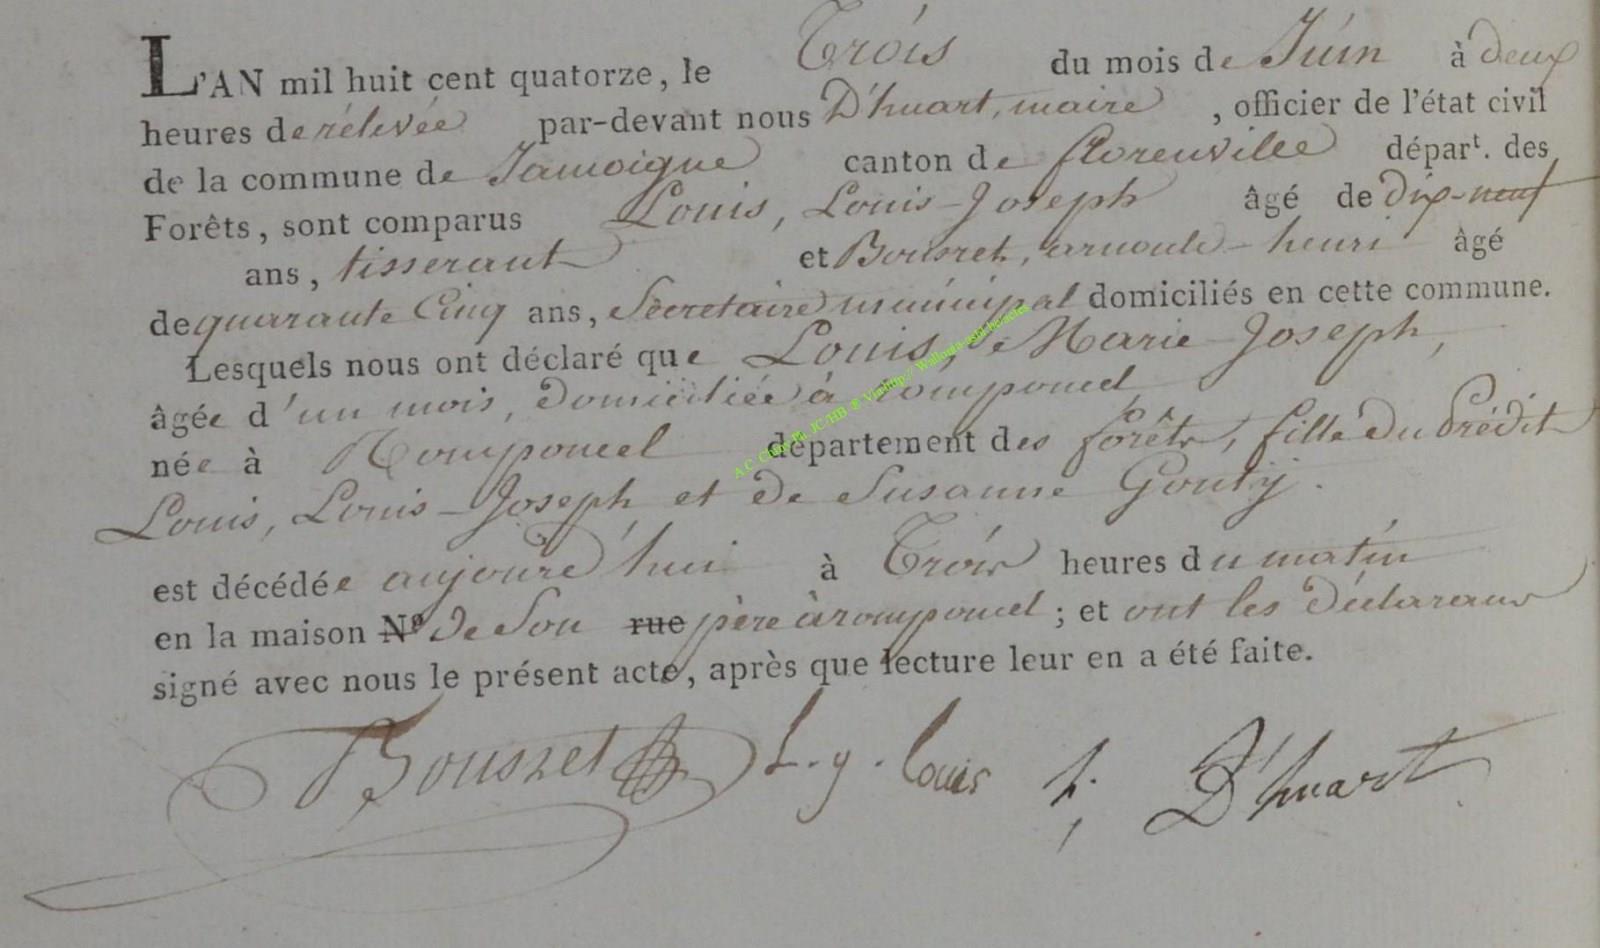 L'AN mil huit cent quatorze, le Trois du mois de Juin à deux
heures de rélevée par-devant nous D'huart, maire, officier de l'état civil
de la commune de Jamoigne canton de florenville départ. des
Forêts, sont comparus Louis, Louis-Joseph âgé de dix-neuf
ans, tisserant et Bousret, arnould-henri âgé
de quarante Cinq ans, Secretaire municipal domiciliés en cette commune.
Lesquels nous ont déclaré que Louis, Marie Joseph,
âgée d'un mois, domiciliée à romponcel
née à Romponcel département des forêts, fille du Prédit
Louis, Louis-Joseph et de Susanne Gouty.
est décédée aujourd'hui à Trois heures du matin
en la maison N° de Son rue père à romponcel; et ont les déclarans
signé avec nous le présent acte, après que lecture leur en a été faite.
Bousret L. j. louis D'huart